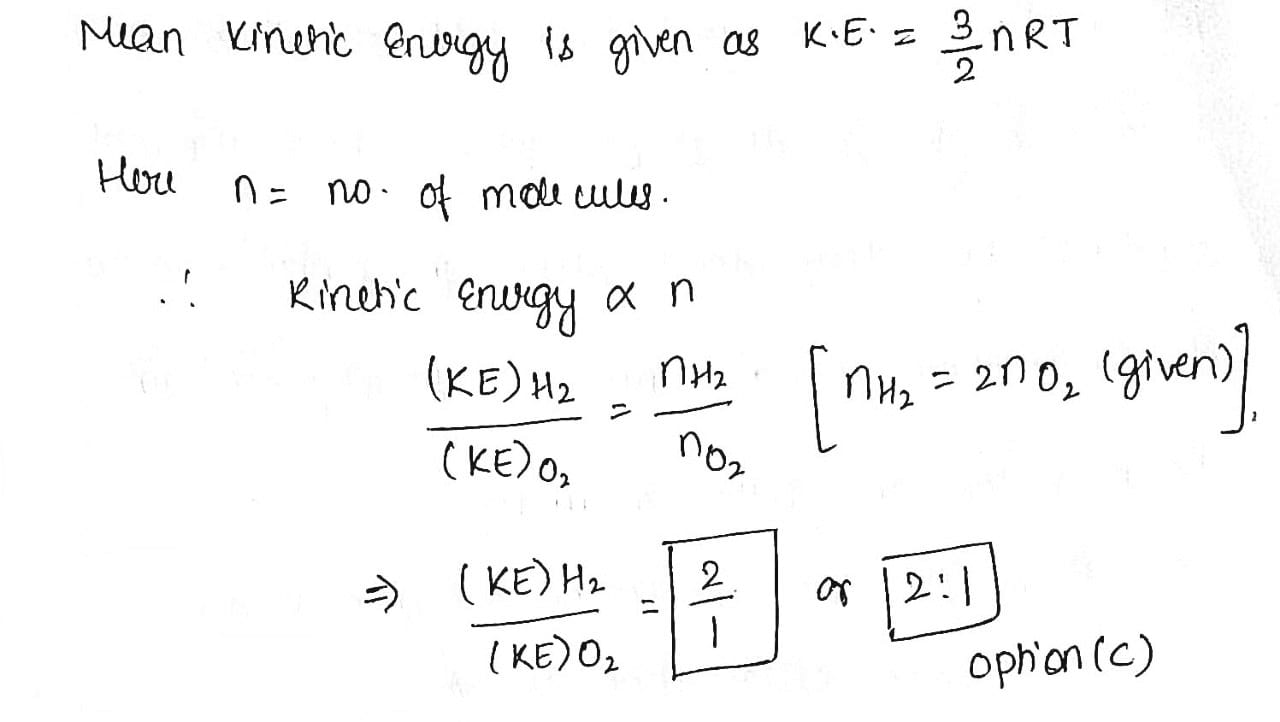 Mean Kinetic Energy is given as K.E. = 3/2 nRT
Here n = no. of molecules.
∴ Kinetic Energy ∝ n
(KE)H₂ / (KE)O₂ = nH₂ / nO₂ [nH₂ = 2nO₂ (given)],
⇒ (KE)H₂ / (KE)O₂ = 2/1 or 2:1
option (C)